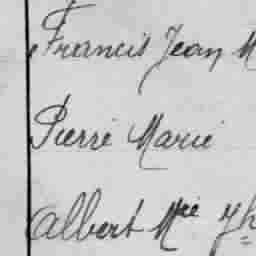 Francis Jean M
Pierre Marie
Albert Mie Jh